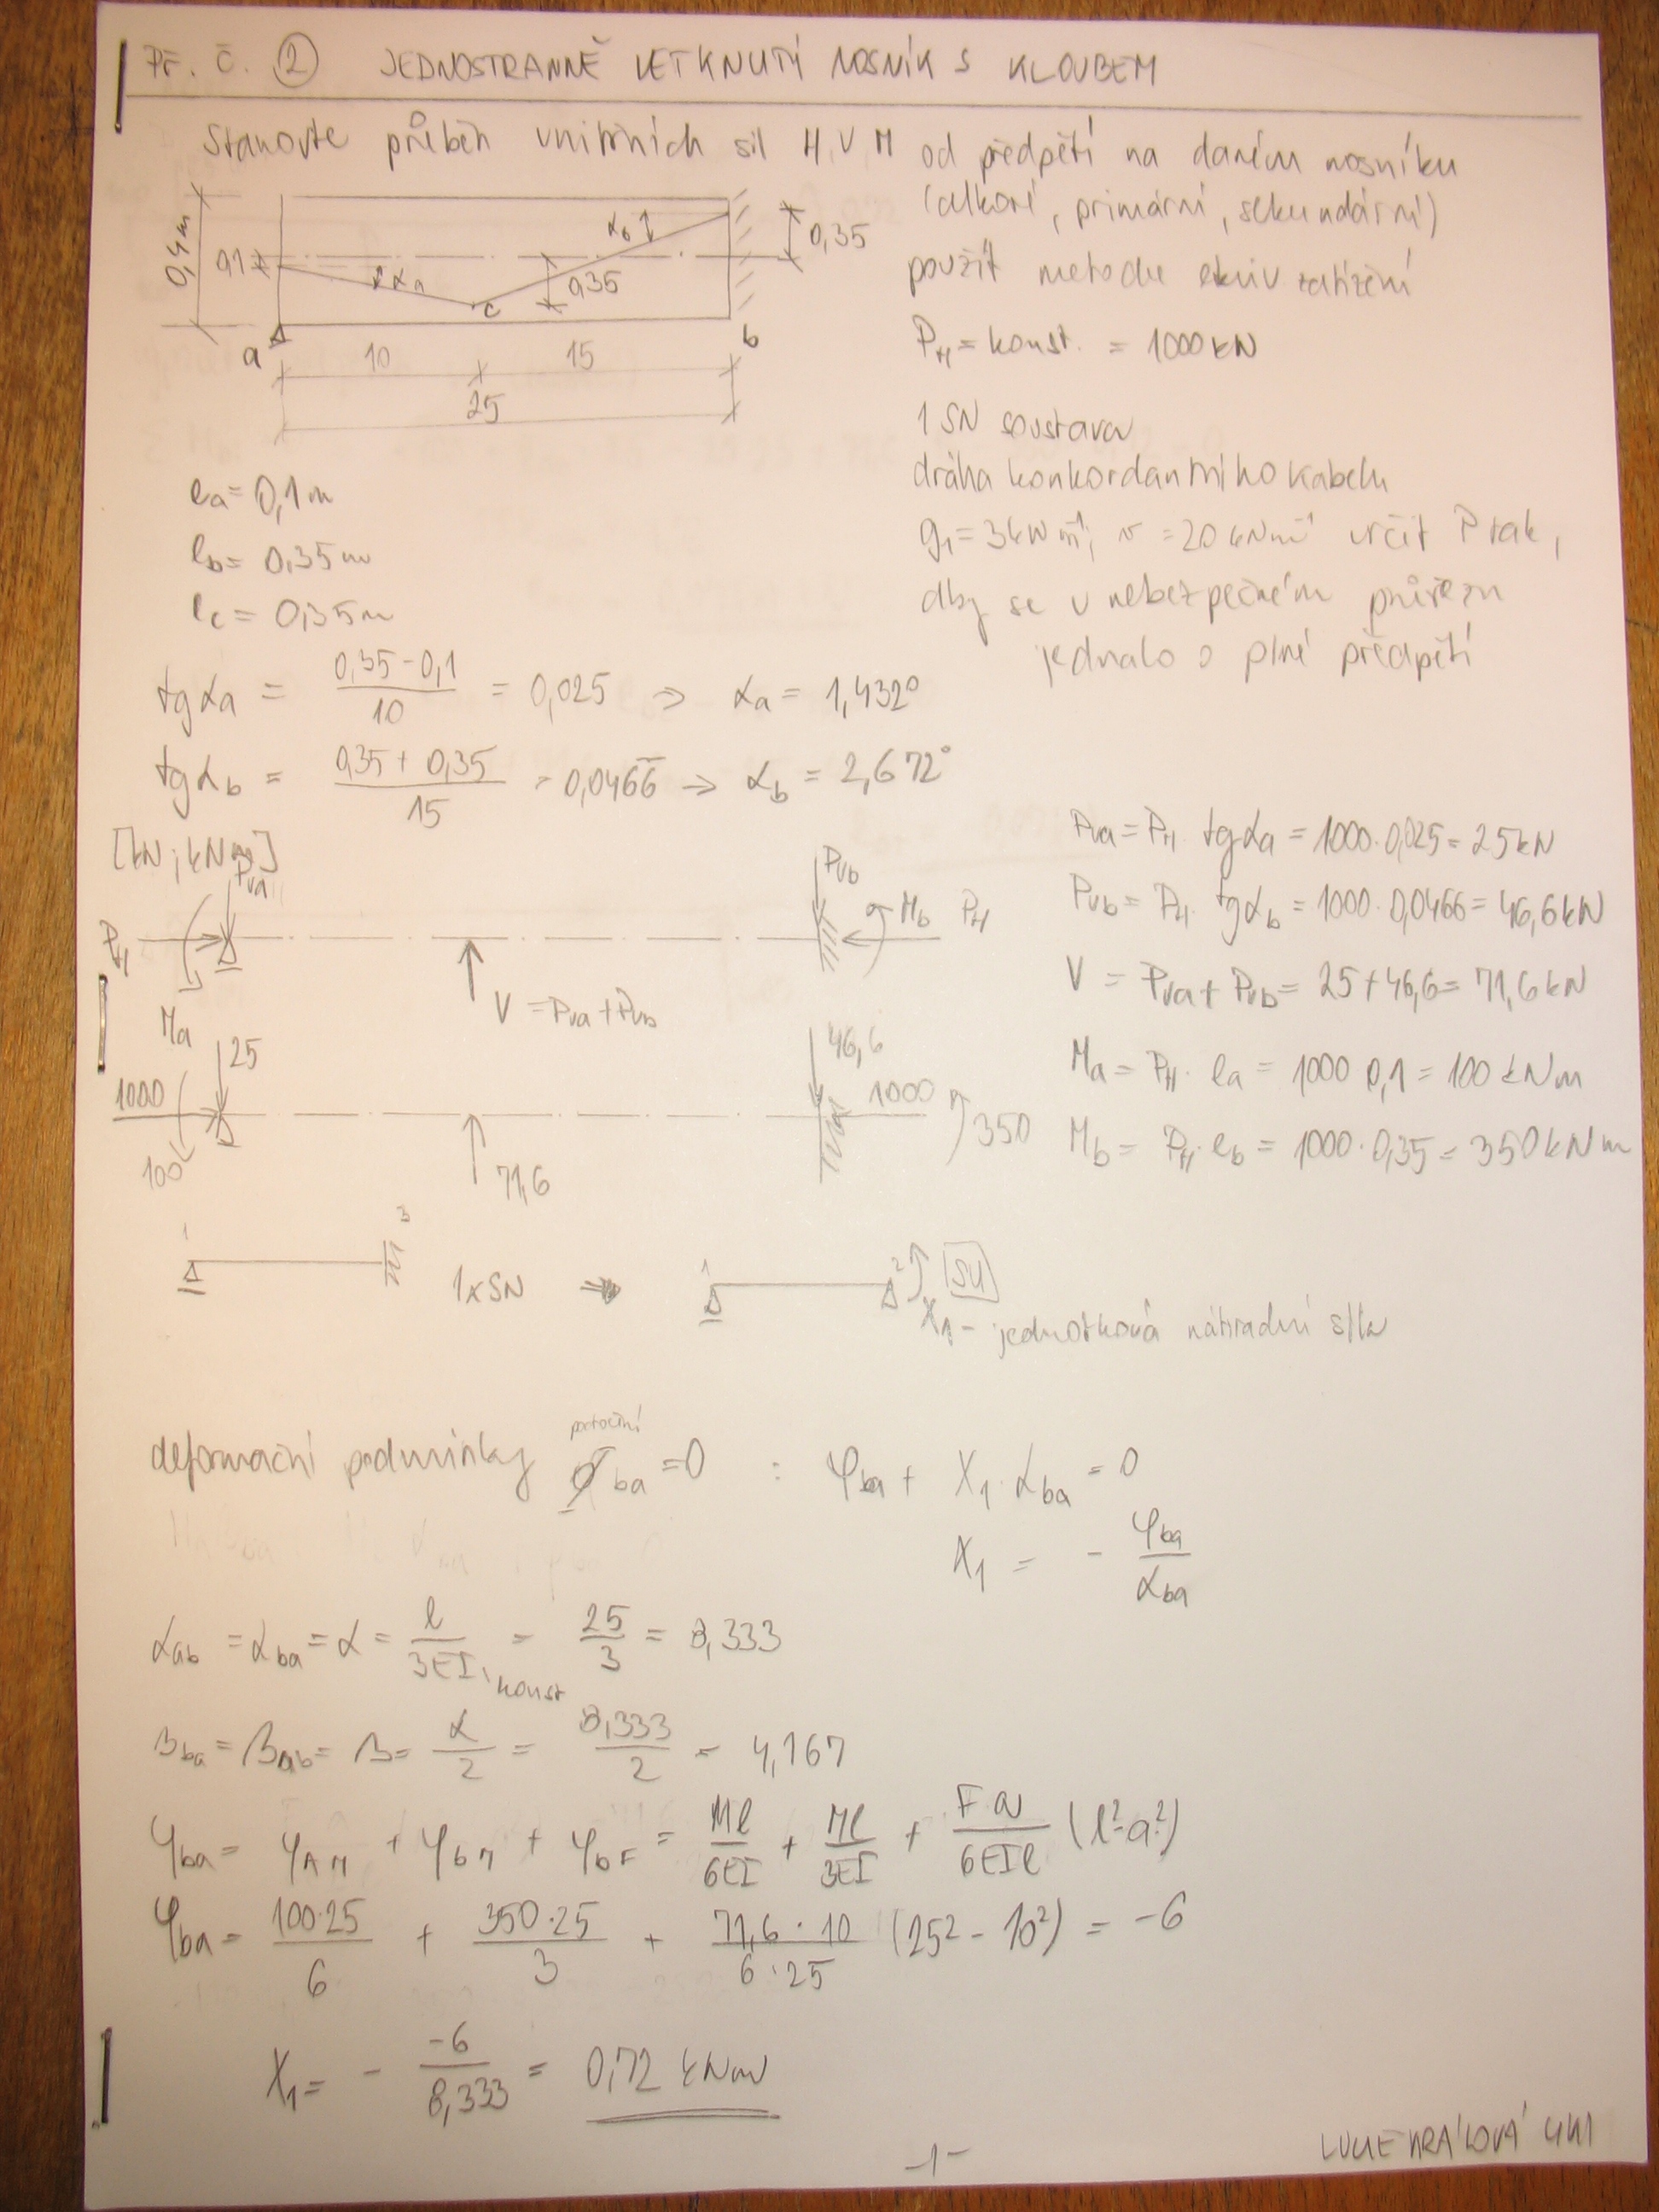 Př. č. 2 JEDNOSTRANNĚ VETKNUTÝ NOSNÍK S KLOUBEM
Stanovte průběh vnitřních sil H,V,M od předpětí na daném nosníku
(celkové, primární, sekundární)
použít metodu ekviv zatížení
0,4m
0,1
αa
αb
0,35
0,35
c
a
b
10
15
25
PH = konst. = 1000kN
1 SN soustava
dráha konkordantního kabelu
g1 = 3kNm-1; v = 20 kNm-1 určit P tak,
aby se v nebezpečném průřezu
jednalo o plné předpětí
ea = 0,1m
eb = 0,35m
ec = 0,35m
tgαa = (0,35-0,1)/10 = 0,025 ⇒ αa = 1,432°
tgαb = (0,35+0,35)/15 = 0,0466 ⇒ αb = 2,672°
[kN; kNm]
Pva
Pvb
PH
Ma
Mb PH
V = Pva+Pvb
Pva = PH · tgαa = 1000·0,025 = 25kN
Pvb = PH · tgαb = 1000·0,0466 = 46,6kN
V = Pva+Pvb = 25+46,6 = 71,6kN
Ma = PH · ea = 1000 0,1 = 100kNm
Mb = PH · eb = 1000·0,35 = 350kNm
25
46,6
1000
1000
100
350
71,6
1
3
1xSN ⇒
1
2
SU
X1 - jednotková náhradní síla
deformační podmínky
potoční
φba = 0 : φba + X1·αba = 0
X1 = - φba/αba
αab = αba = α = l/3EI, konst = 25/3 = 8,333
βba = βab = β = α/2 = 8,333/2 = 4,167
φba = φAM + φbM + φbF = Ml/6EI + Ml/3EI + F·a/6EIl (l²-a²)
φba = 100·25/6 + 350·25/3 + 71,6·10/6·25 (25²-10²) = -6
X1 = - -6/8,333 = 0,72 kNm
-1-
LUCIE KRÁLOVÁ 4K1